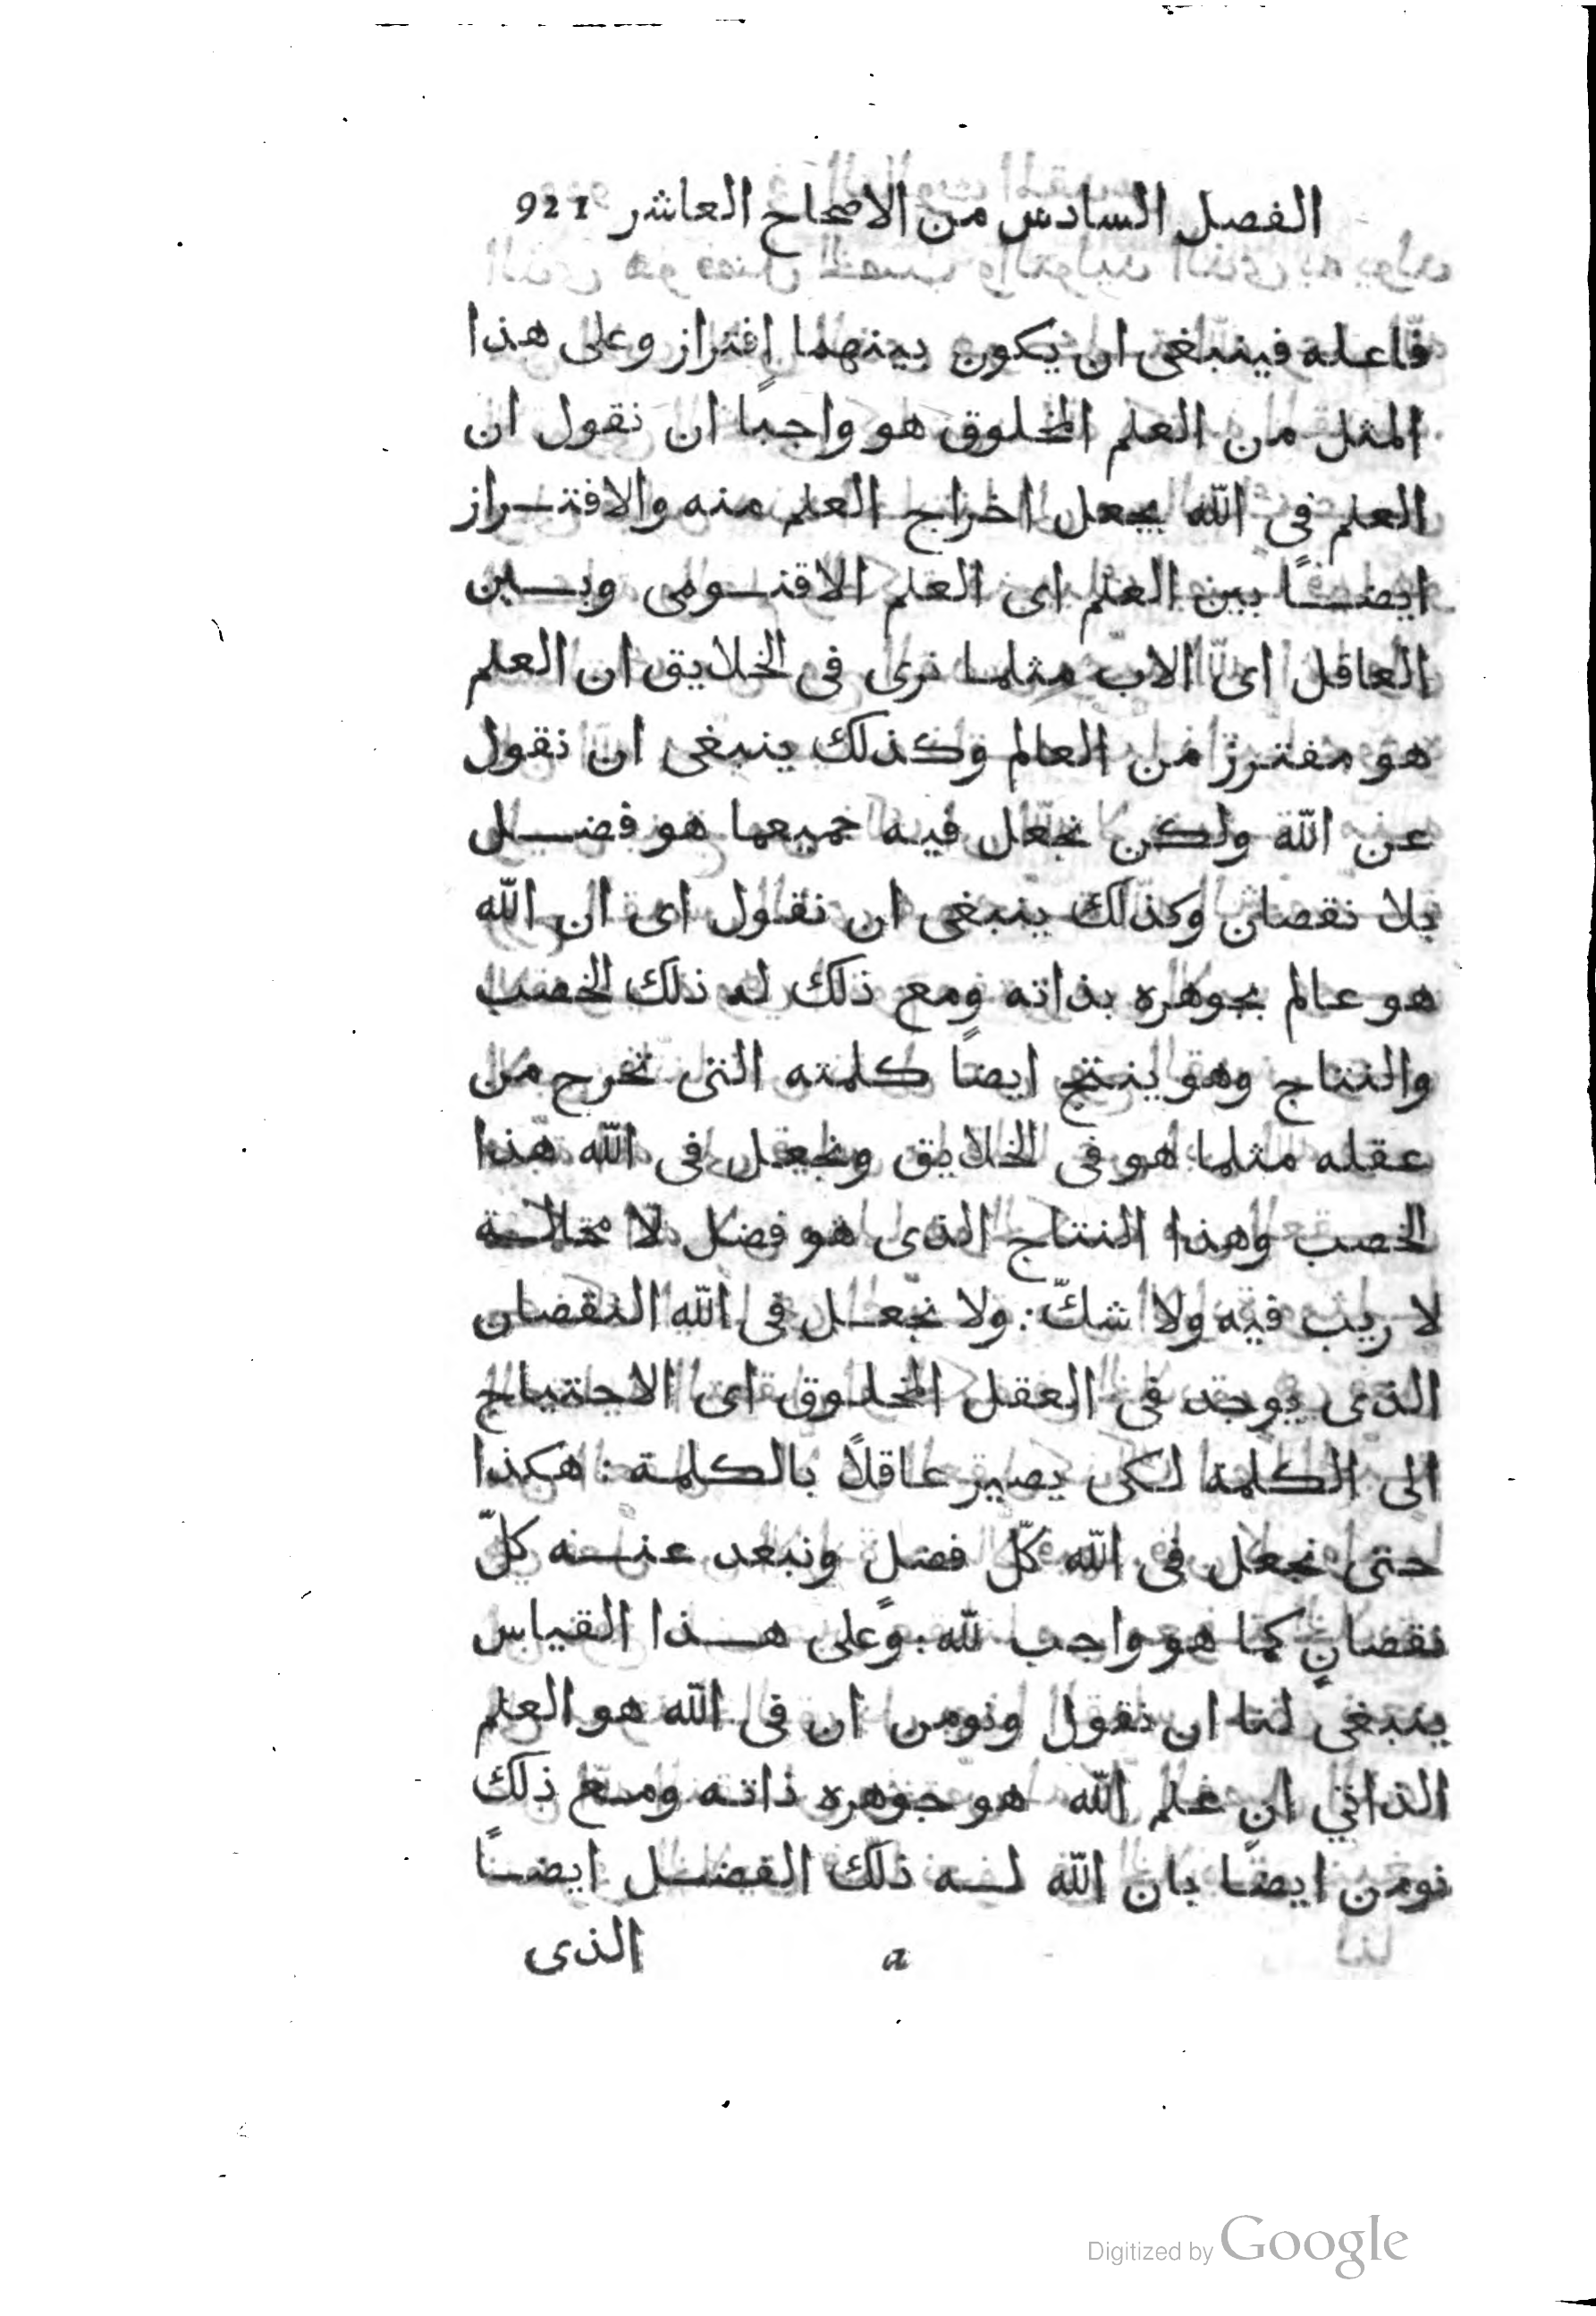 الفصل السادس من الاصحاح العاشر 921
فاعله فينبغى ان يكون بينهما افتراز وعلى هذا
المثل من العلم المخلوق هو واجبا ان نقول ان
العلم فى الله يجعل اخراج العلم منه والافتراز
ايضًا بين العلم اى العلم الاقنومى وبين
العاقل اى الاب مثلما نرى فى الخلايق ان العلم
هو مفترز من العالم وكذلك ينبغى ان نقول
عن الله ولكن نجعل فيه جميعما هو فضل
بلا نقصان وكذلك ينبغى ان نقول اى ان الله
هو عالم بجوهره بذاته ومع ذلك له ذلك الخصب
والنتاج وهو ينتج ايضًا كلمته التى تخرج من
عقله مثلما هو فى الخلايق ونجعل فى الله هذا
الخصب وهذا النتاج الذى هو فضل لا محلاة
لا ريب فيه ولا شكّ: ولا نجعل فى الله النقصان
الذى يوجد فى العقل المخلوق اى الاحتياج
الى الكلمة لكى يصير عاقلًا بالكلمة: هكذا
حتى نجعل فى الله كلّ فضلٍ ونبعد عنه كلّ
نقصانٍ كما هو واجب لله: وعلى هذا القياس
ينبغى لنا ان نقول ونومن ان فى الله هو العلم
الذاتي ان علم الله هو جوهره ذاته ومع ذلك
نومن ايضًا بان الله له ذلك الفضل ايضًا
a الذى
Digitized by Google